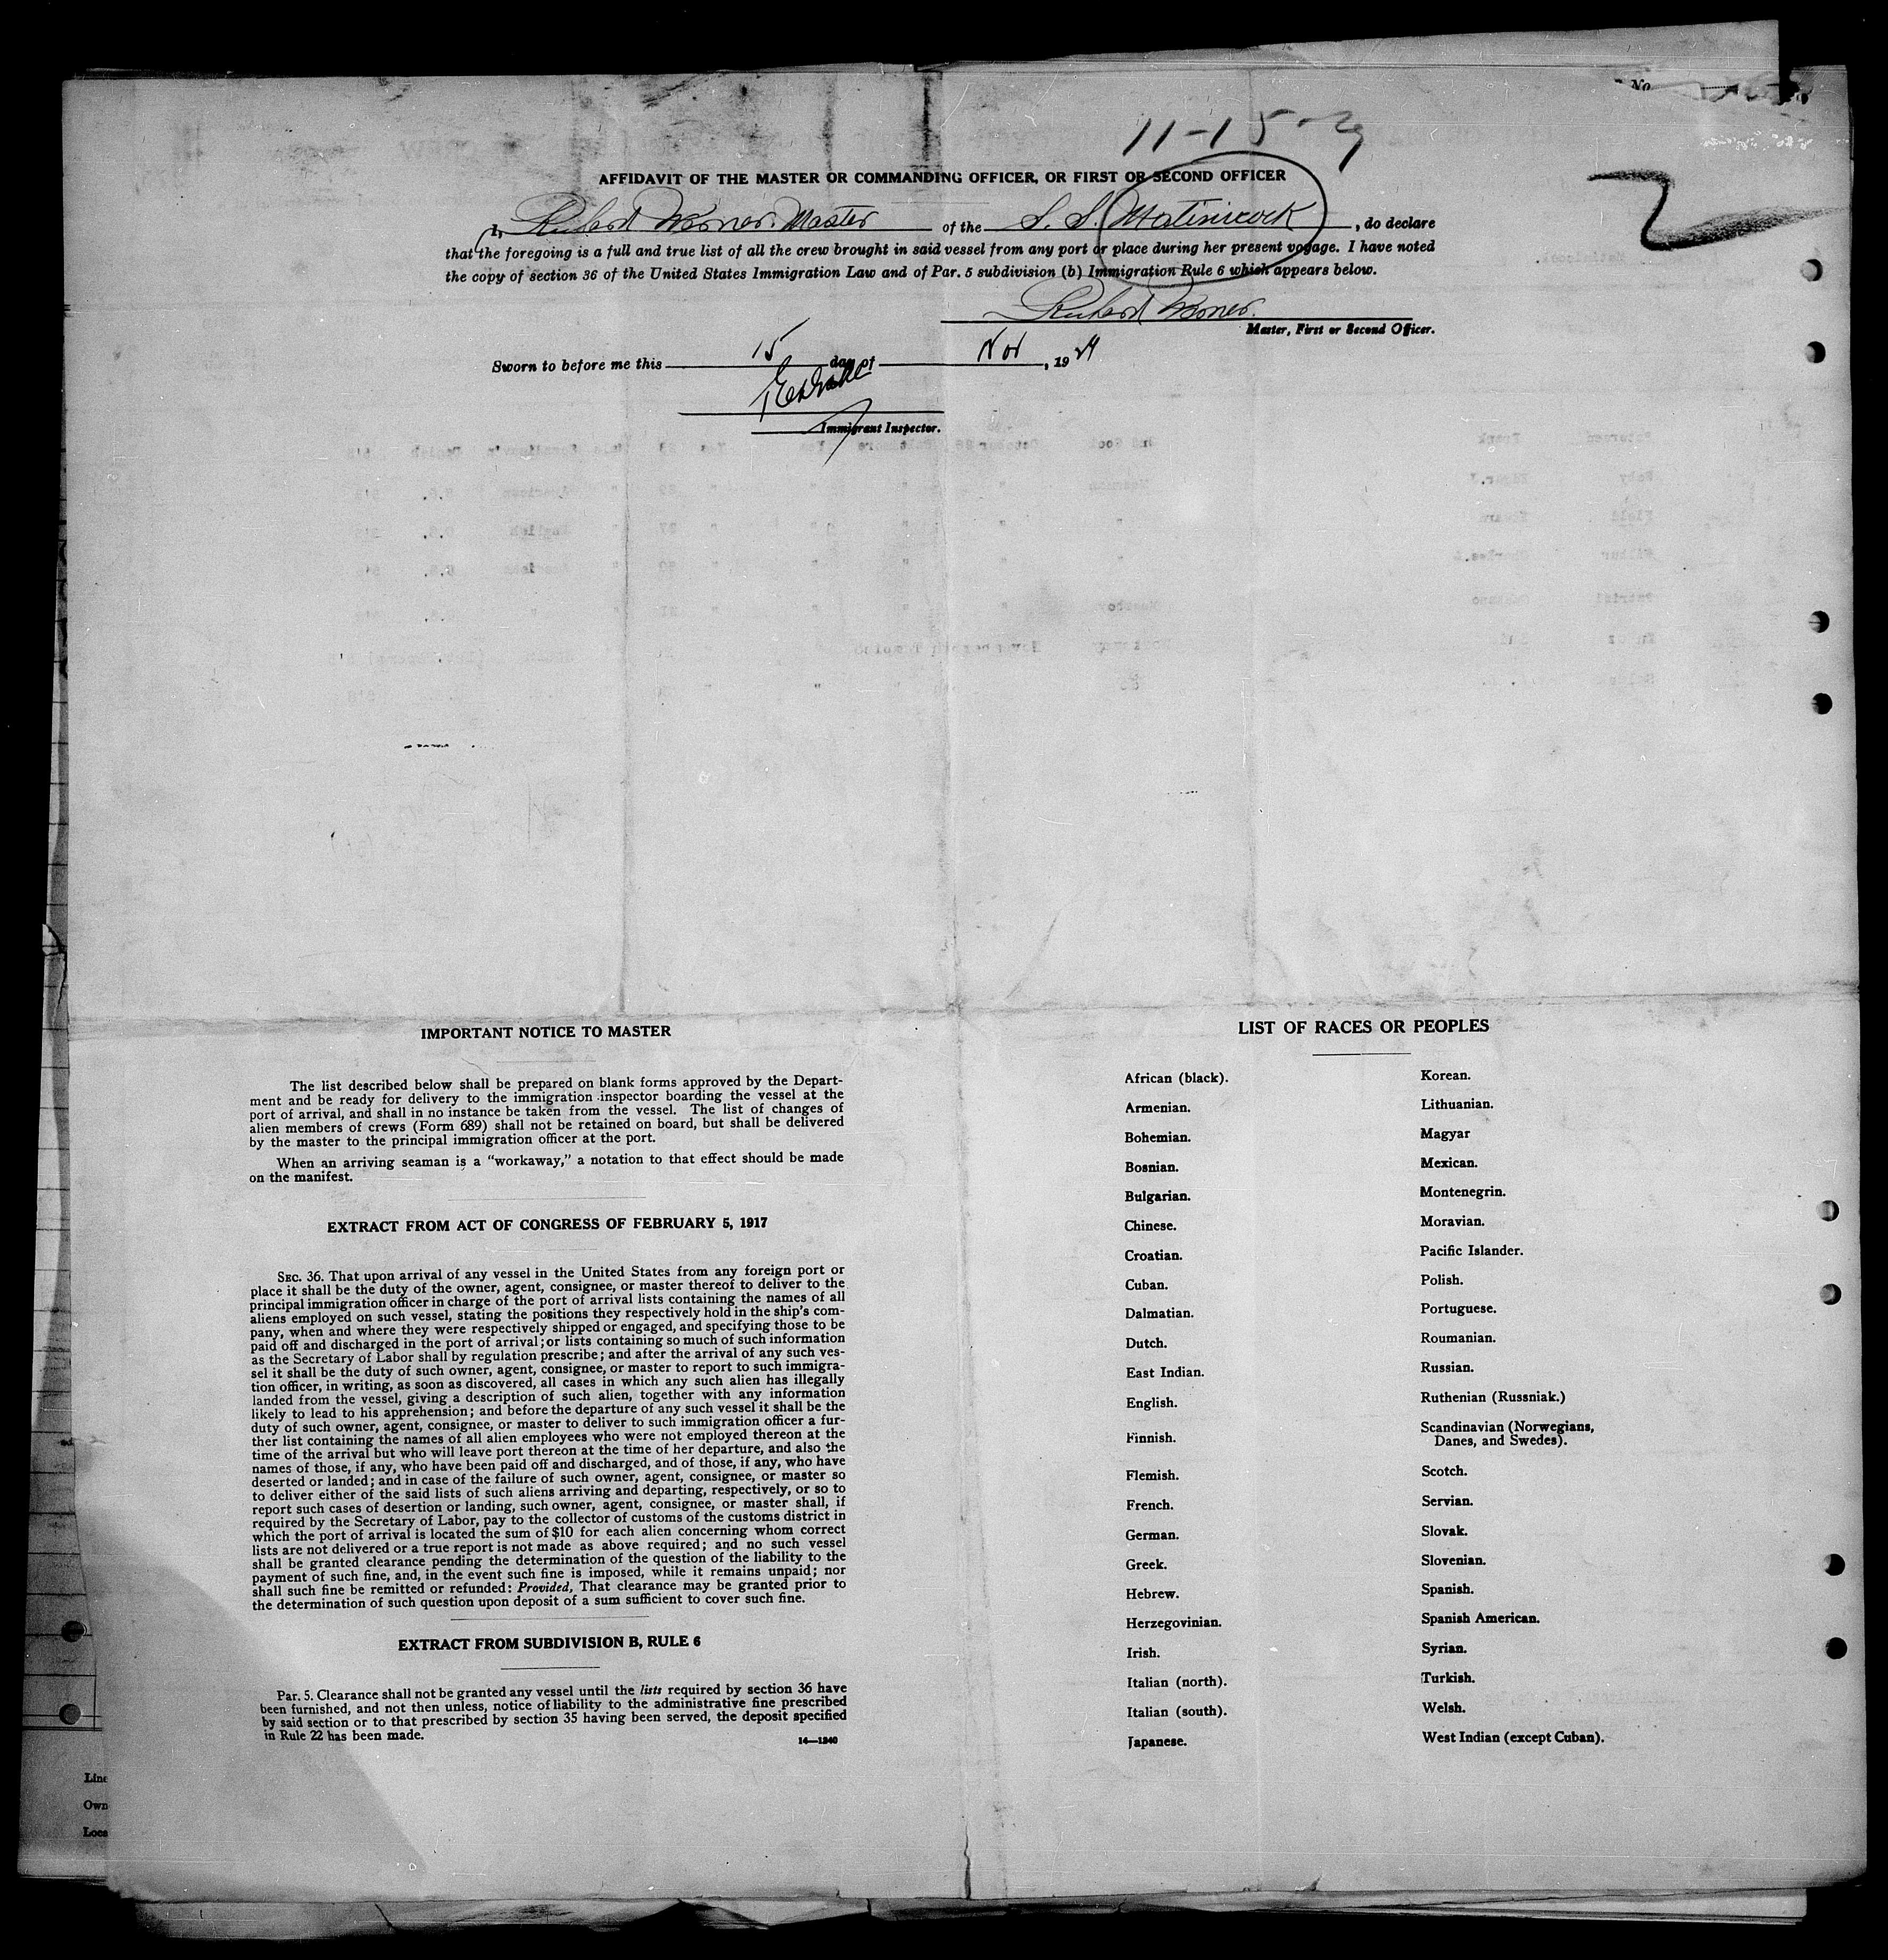 No
11-15-29
2
AFFIDAVIT OF THE MASTER OR COMMANDING OFFICER, OR FIRST OR SECOND OFFICER
I, Master of the S. S. Matinicock, do declare
that the foregoing is a full and true list of all the crew brought in said vessel from any port or place during her present voyage. I have noted
the copy of section 36 of the United States Immigration Law and of Par. 5 subdivision (b) Immigration Rule 6 which appears below.
Master, First or Second Officer.
Sworn to before me this 15 day of Nov, 19
Immigrant Inspector.
IMPORTANT NOTICE TO MASTER
The list described below shall be prepared on blank forms approved by the Depart-
ment and be ready for delivery to the immigration inspector boarding the vessel at the
port of arrival, and shall in no instance be taken from the vessel. The list of changes of
alien members of crews (Form 689) shall not be retained on board, but shall be delivered
by the master to the principal immigration officer at the port.
When an arriving seaman is a "workaway," a notation to that effect should be made
on the manifest.
EXTRACT FROM ACT OF CONGRESS OF FEBRUARY 5, 1917
SEC. 36. That upon arrival of any vessel in the United States from any foreign port or
place it shall be the duty of the owner, agent, consignee, or master thereof to deliver to the
principal immigration officer in charge of the port of arrival lists containing the names of all
aliens employed on such vessel, stating the positions they respectively hold in the ship's com-
pany, when and where they were respectively shipped or engaged, and specifying those to be
paid off and discharged in the port of arrival; or lists containing so much of such information
as the Secretary of Labor shall by regulation prescribe; and after the arrival of any such ves-
sel it shall be the duty of such owner, agent, consignee, or master to report to such immigra-
tion officer, in writing, as soon as discovered, all cases in which any such alien has illegally
landed from the vessel, giving a description of such alien, together with any information
likely to lead to his apprehension; and before the departure of any such vessel it shall be the
duty of such owner, agent, consignee, or master to deliver to such immigration officer a fur-
ther list containing the names of all alien employees who were not employed thereon at the
time of the arrival but who will leave port thereon at the time of her departure, and also the
names of those, if any, who have been paid off and discharged, and of those, if any, who have
deserted or landed; and in case of the failure of such owner, agent, consignee, or master so
to deliver either of the said lists of such aliens arriving and departing, respectively, or so to
report such cases of desertion or landing, such owner, agent, consignee, or master shall, if
required by the Secretary of Labor, pay to the collector of customs of the customs district in
which the port of arrival is located the sum of $10 for each alien concerning whom correct
lists are not delivered or a true report is not made as above required; and no such vessel
shall be granted clearance pending the determination of the question of the liability to the
payment of such fine, and, in the event such fine is imposed, while it remains unpaid; nor
shall such fine be remitted or refunded: Provided, That clearance may be granted prior to
the determination of such question upon deposit of a sum sufficient to cover such fine.
EXTRACT FROM SUBDIVISION B, RULE 6
Par. 5. Clearance shall not be granted any vessel until the lists required by section 36 have
been furnished, and not then unless, notice of liability to the administrative fine prescribed
by said section or to that prescribed by section 35 having been served, the deposit specified
in Rule 22 has been made.
14—1240
LIST OF RACES OR PEOPLES
African (black).
Armenian.
Bohemian.
Bosnian.
Bulgarian.
Chinese.
Croatian.
Cuban.
Dalmatian.
Dutch.
East Indian.
English.
Finnish.
Flemish.
French.
German.
Greek.
Hebrew.
Herzegovinian.
Irish.
Italian (north).
Italian (south).
Japanese.
Korean.
Lithuanian.
Magyar
Mexican.
Montenegrin.
Moravian.
Pacific Islander.
Polish.
Portuguese.
Roumanian.
Russian.
Ruthenian (Russniak.)
Scandinavian (Norwegians,
Danes, and Swedes).
Scotch.
Servian.
Slovak.
Slovenian.
Spanish.
Spanish American.
Syrian.
Turkish.
Welsh.
West Indian (except Cuban).
Line
Own
Loca